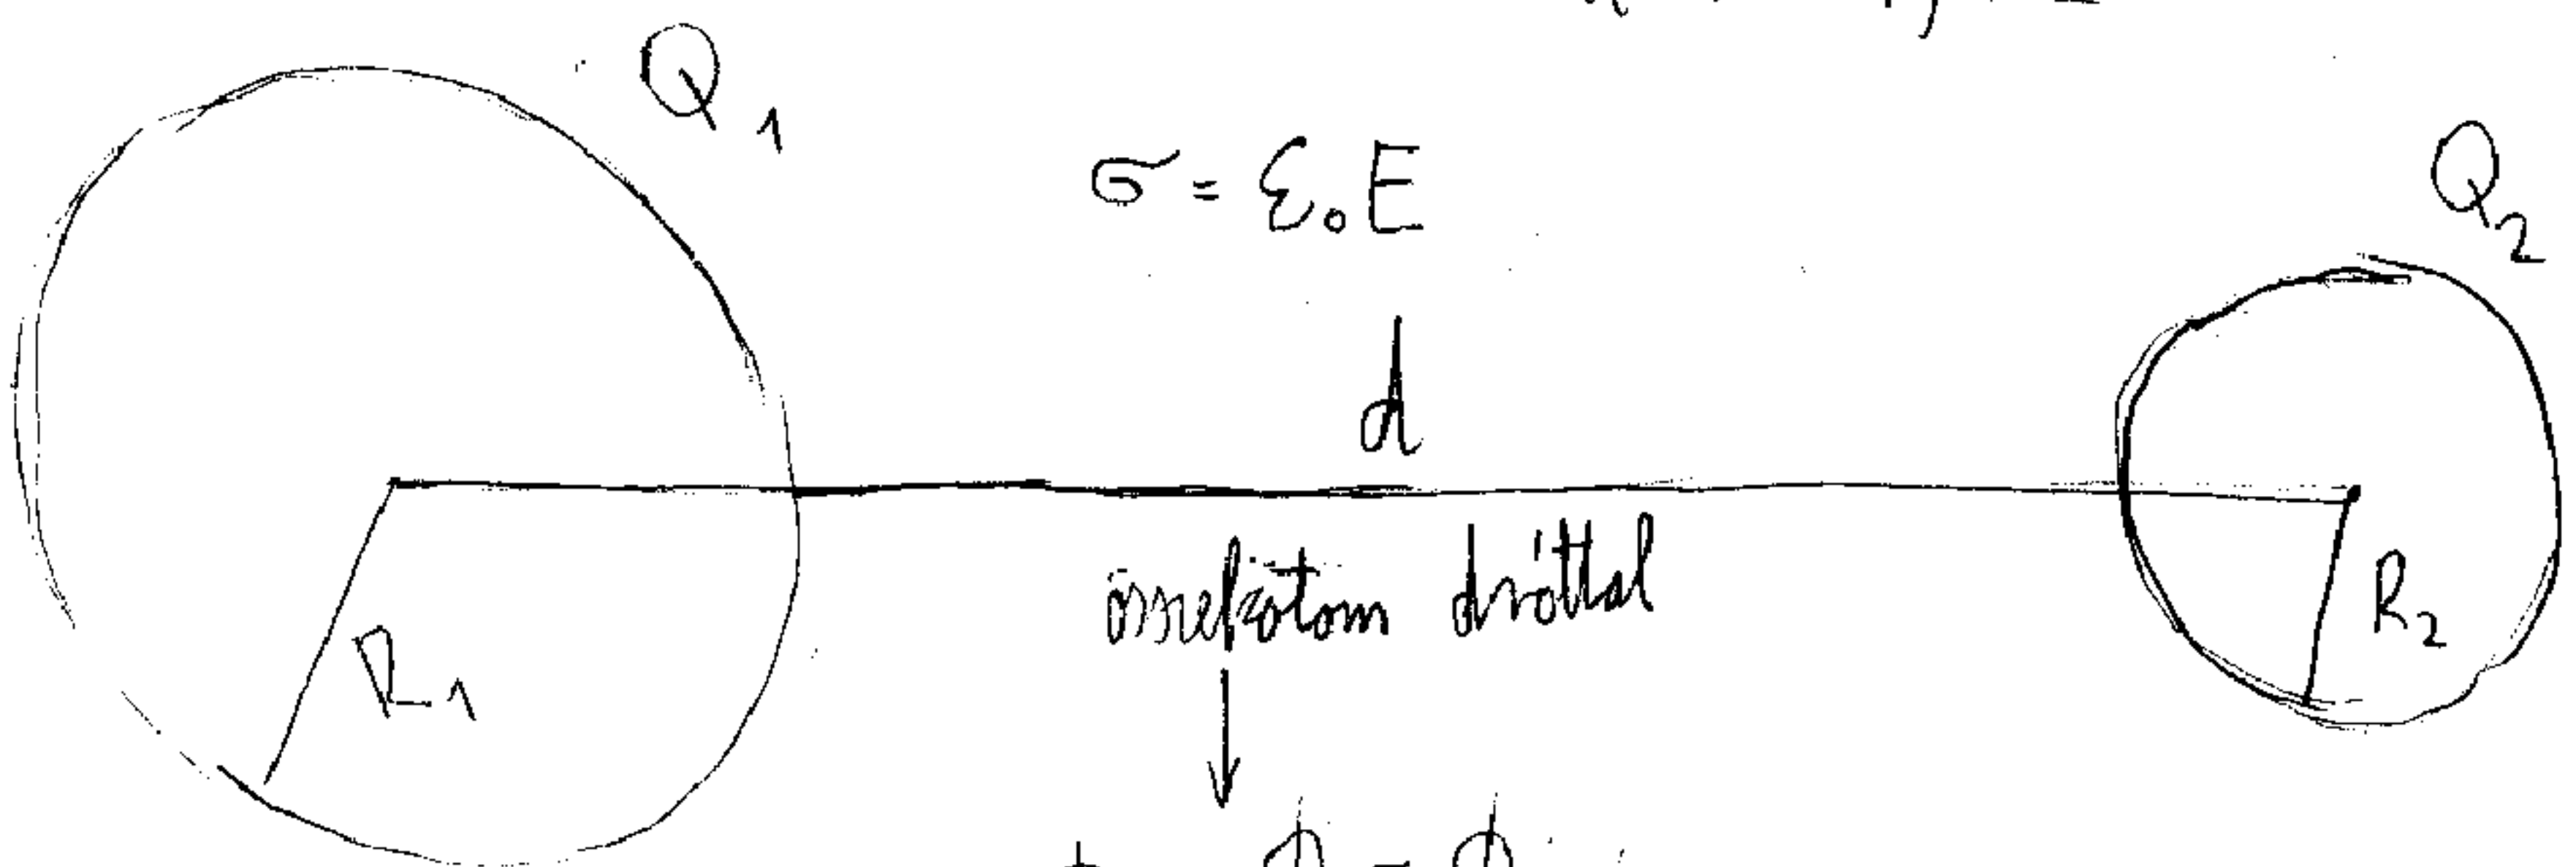 Q₁
σ = ε₀E
Q₂
d
összekötöm dróttal
R₁
R₂